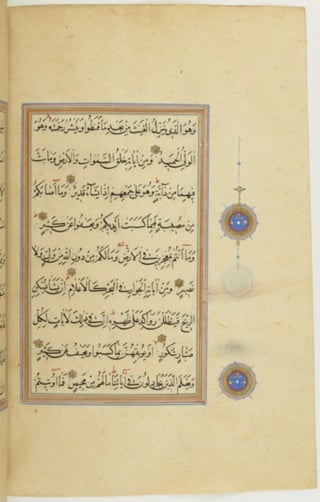 وَهُوَ الَّذِي يُنَزِّلُ الْغَيْثَ مِنْ بَعْدِ مَا قَنَطُوا وَيَنْشُرُ رَحْمَتَهُ وَهُوَ
الْوَلِيُّ الْحَمِيدُ وَمِنْ آيَاتِهِ خَلْقُ السَّمٰوَاتِ وَالْأَرْضِ وَمَا بَثَّ
فِيهِمَا مِنْ دَابَّةٍ وَهُوَ عَلَى جَمْعِهِمْ إِذَا يَشَاءُ قَدِيرٌ وَمَا أَصَابَكُمْ
مِنْ مُصِيبَةٍ فَبِمَا كَسَبَتْ أَيْدِيكُمْ وَيَعْفُو عَنْ كَثِيرٍ
وَمَا أَنْتُمْ بِمُعْجِزِينَ فِي الْأَرْضِ وَمَا لَكُمْ مِنْ دُونِ اللّٰهِ مِنْ وَلِيٍّ وَلَا
نَصِيرٍ وَمِنْ آيَاتِهِ الْجَوَارِ فِي الْبَحْرِ كَالْأَعْلَامِ إِنْ يَشَأْ يُسْكِنِ
الرِّيحَ فَيَظْلَلْنَ رَوَاكِدَ عَلَى ظَهْرِهِ إِنَّ فِي ذٰلِكَ لَآيَاتٍ لِكُلِّ
صَبَّارٍ شَكُورٍ أَوْ يُوبِقْهُنَّ بِمَا كَسَبُوا وَيَعْفُ عَنْ كَثِيرٍ
وَيَعْلَمَ الَّذِينَ يُجَادِلُونَ فِي آيَاتِنَا مَا لَهُمْ مِنْ مَحِيصٍ فَمَا أُوتِيتُمْ